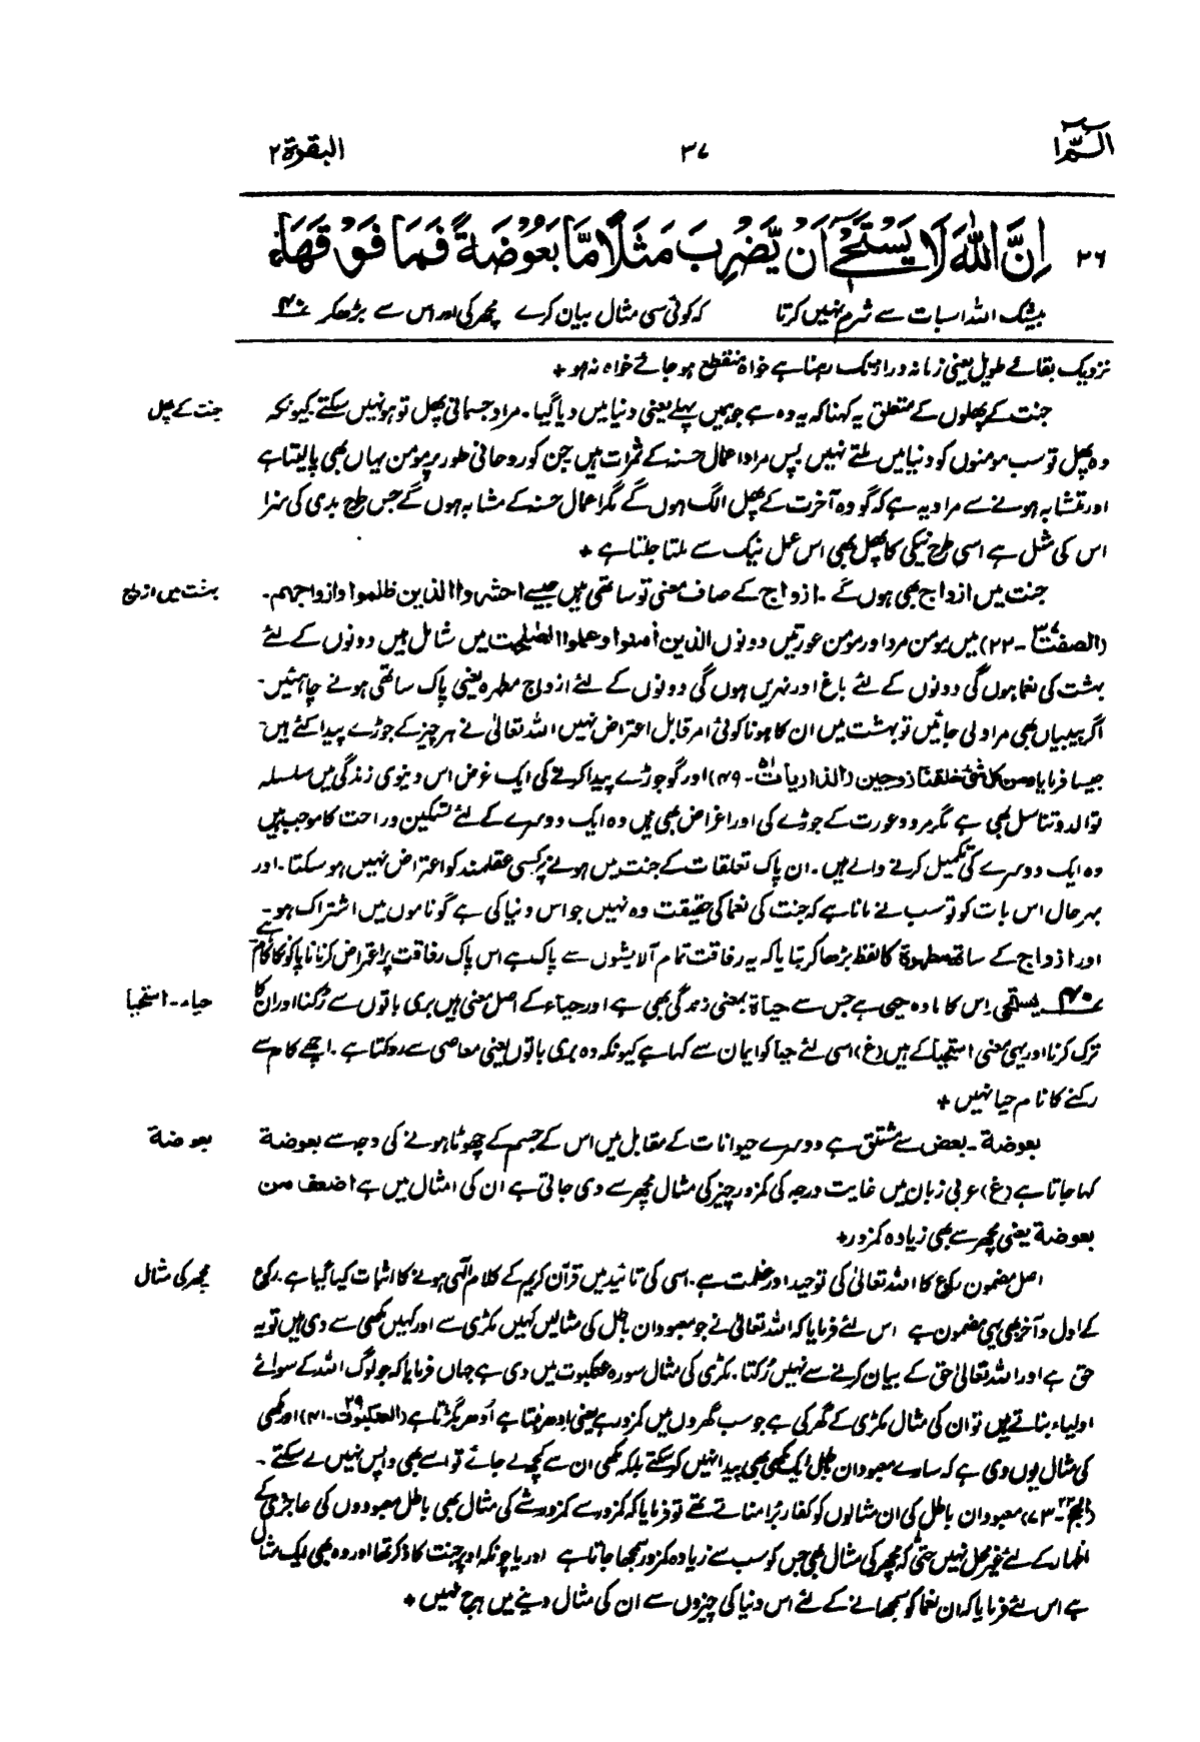 الٓمّٓ ۱ ۳۷ البقرة ۲
۲۶ اِنَّ اللّٰهَ لَا یَسْتَحْیٖۤ اَنْ یَّضْرِبَ مَثَلًا مَّا بَعُوْضَةً فَمَا فَوْقَهَا ؕ
بیشک اللہ اسبات سے شرم نہیں کرتا کہ کوئی سی مثال بیان کرے مچھر کی اور اس سے بڑھکر ۴۰
نزدیک بقائے طویل یعنی زمانہ دراز تک رہنا ہے خواہ منقطع ہو جائے خواہ نہ ہو +
جنت کے پھل
جنت کے پھلوں کے متعلق یہ کہنا کہ یہ وہ ہے جو ہمیں پہلے یعنی دنیا میں دیا گیا۔ مراد جسمانی پھل تو ہو نہیں سکتے کیونکہ
وہ پھل تو سب مومنوں کو دنیا میں ملتے نہیں پس مراد اعمال حسنہ کے ثمرات ہیں جن کو روحانی طور پر مومن یہاں بھی پا لیتا ہے
اور متشابہ ہونے سے مراد یہ ہے کہ گو وہ آخرت کے پھل الگ ہوں گے مگر اعمال حسنہ کے مشابہ ہوں گے جس طرح بدی کی سزا
اس کی مثل ہے اسی طرح نیکی کا پھل بھی اس عمل نیک سے ملتا جلتا ہے +
بہشت میں ازواج
جنت میں ازواج بھی ہوں گے۔ ازواج کے صاف معنی تو ساتھی ہیں جیسے احشروا الذین ظلموا و ازواجہم۔
(الصفت ۳۷-۲۲) میں مومن مرد اور مومن عورتیں دونوں الذین اٰمنوا وعملوا الصٰلحٰت میں شامل ہیں دونوں کے لئے
بہشت کی نعما ہوں گی دونوں کے لئے باغ اور نہریں ہوں گی دونوں کے لئے ازواج مطہرہ یعنی پاک ساتھی ہونے چاہئیں۔
اگر بیبیاں بھی مراد لی جائیں تو بہشت میں ان کا ہونا کوئی امر قابل اعتراض نہیں اللہ تعالیٰ نے ہر چیز کے جوڑے پیدا کئے ہیں
جیسا فرمایا ومن کل شئ خلقنا زوجین (الذاریات ۵۱-۴۹) اور گو جوڑے پیدا کرنے کی ایک غرض اس دنیوی زندگی میں سلسلہ
توالد و تناسل بھی ہے مگر مرد و عورت کے جوڑے کی اور اغراض بھی ہیں وہ ایک دوسرے کے لئے تسکین و راحت کا موجب ہیں
وہ ایک دوسرے کی تکمیل کرنے والے ہیں۔ ان پاک تعلقات کے جنت میں ہونے پر کسی عقلمند کو اعتراض نہیں ہو سکتا۔ اور
بہر حال اس بات کو تو سب نے مانا ہے کہ جنت کی نعما کی حقیقت وہ نہیں جو اس دنیا کی ہے گو ناموں میں اشتراک ہو
اور ازواج کے ساتھ مطہرة کا لفظ بڑھا کر بتایا کہ یہ رفاقت تمام آلایشوں سے پاک ہے اس پاک رفاقت پر اعتراض کرنا ناپاکوں کا کام ہے
حیاء۔ استحیا
۴۰ یستحی اس کا مادہ حیی ہے جس سے حیاة بمعنی زندگی بھی ہے اور حیاء کے اصل معنی ہیں بری باتوں سے رُکنا اور ان کا
ترک کرنا اور یہی معنی استحیا کے ہیں (غ) اسی لئے حیا کو ایمان سے کہا ہے کیونکہ وہ بری باتوں یعنی معاصی سے روکتا ہے۔ اچھے کام سے
رکنے کا نام حیا نہیں +
بعوضة
بعوضة۔ بعض سے مشتق ہے دوسرے حیوانات کے مقابل میں اس کے جسم کے چھوٹا ہونے کی وجہ سے بعوضة
کہا جاتا ہے (غ) عربی زبان میں غایت درجہ کی کمزور چیز کی مثال مچھر سے دی جاتی ہے ان کی امثال میں ہے اضعف من
بعوضة یعنی مچھر سے بھی زیادہ کمزور +
مچھر کی مثال
اصل مضمون رکوع کا اللہ تعالیٰ کی توحید اور عظمت ہے۔ اسی کی تائید میں قرآن کریم کے کلام الٰہی ہونے کا اثبات کیا گیا ہے۔ رکوع
کے اول و آخر بھی یہی مضمون ہے اس لئے فرمایا کہ اللہ تعالیٰ نے جو معبودان باطل کی مثالیں کہیں مکڑی سے اور کہیں مکھی سے دی ہیں تو یہ
حق ہے اور اللہ تعالیٰ حق کے بیان کرنے سے نہیں رُکتا۔ مکڑی کی مثال سورہ عنکبوت میں دی ہے جہاں فرمایا کہ جو لوگ اللہ کے سوائے
اولیاء بناتے ہیں تو ان کی مثال مکڑی کے گھر کی ہے جو سب گھروں میں کمزور ہے یعنی ادھر بنتا ہے اُدھر بگڑتا ہے (العنکبوت ۲۹-۴۱) اور مکھی
کی مثال یوں دی ہے کہ سارے معبودان باطل ایک مکھی بھی پیدا نہیں کر سکتے بلکہ مکھی ان سے کچھ لے جائے تو اسے بھی واپس نہیں لے سکتے۔
(الحج ۲۲-۷۳) معبودان باطل کی ان مثالوں کو کفار بُرا مناتے تھے تو فرمایا کہ کمزور سے کمزور شے کی مثال بھی باطل معبودوں کی عاجزی کے
اظہار کے لئے غیر محل نہیں حتّٰی کہ مچھر کی مثال بھی جس کو سب سے زیادہ کمزور سمجھا جاتا ہے اور یا چونکہ اوپر جنت کا ذکر تھا اور وہ بھی ایک مثال
ہے اس لئے فرمایا کہ ان نعما کو سمجھانے کے لئے اس دنیا کی چیزوں سے ان کی مثال دینے میں ہرج نہیں +